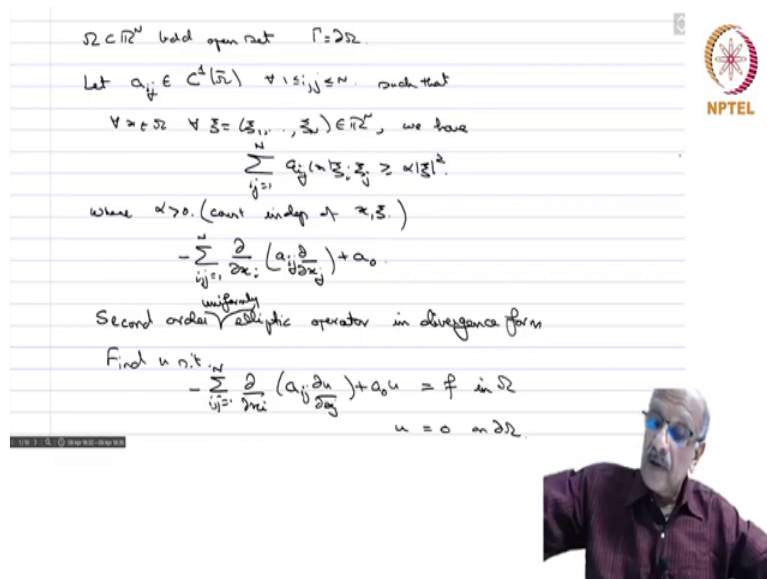 Ω ⊂ ℝ^N bdd open set Γ = ∂Ω.
Let a_ij ∈ C^1(Ω̄) ∀ 1≤i,j≤N. such that
∀ x ∈ Ω ∀ ξ = (ξ_1, ..., ξ_N) ∈ ℝ^N, we have
∑_{i,j=1}^N a_ij(x) ξ_i ξ_j ≥ α|ξ|^2.
where α>0. (const indep of x, ξ.)
-∑_{i,j=1}^N ∂/∂x_i (a_ij ∂/∂x_j) + a_0.
uniformly
Second order elliptic operator in divergence form
Find u s.t.
-∑_{i,j=1}^N ∂/∂x_i (a_ij ∂u/∂x_j) + a_0 u = f in Ω
u = 0 on ∂Ω.
NPTEL